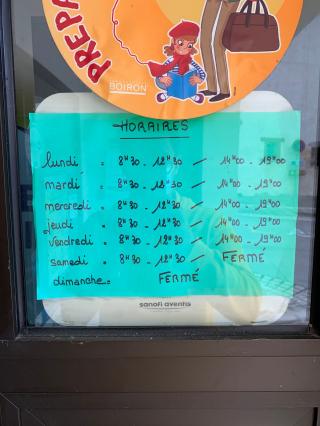 PREPA
BOIRON
HORAIRES
lundi = 8H30 - 12H30 / 14H00 - 19H00
mardi = 8H30 - 12H30 / 14H00 - 19H00
mercredi = 8H30 - 12H30 / 14H00 - 19H00
jeudi = 8H30 - 12H30 / 14H00 - 19H00
vendredi = 8H30 - 12H30 / 14H00 - 19H00
samedi = 8H30 - 12H30 / FERMÉ
dimanche = FERMÉ
sanofi aventis